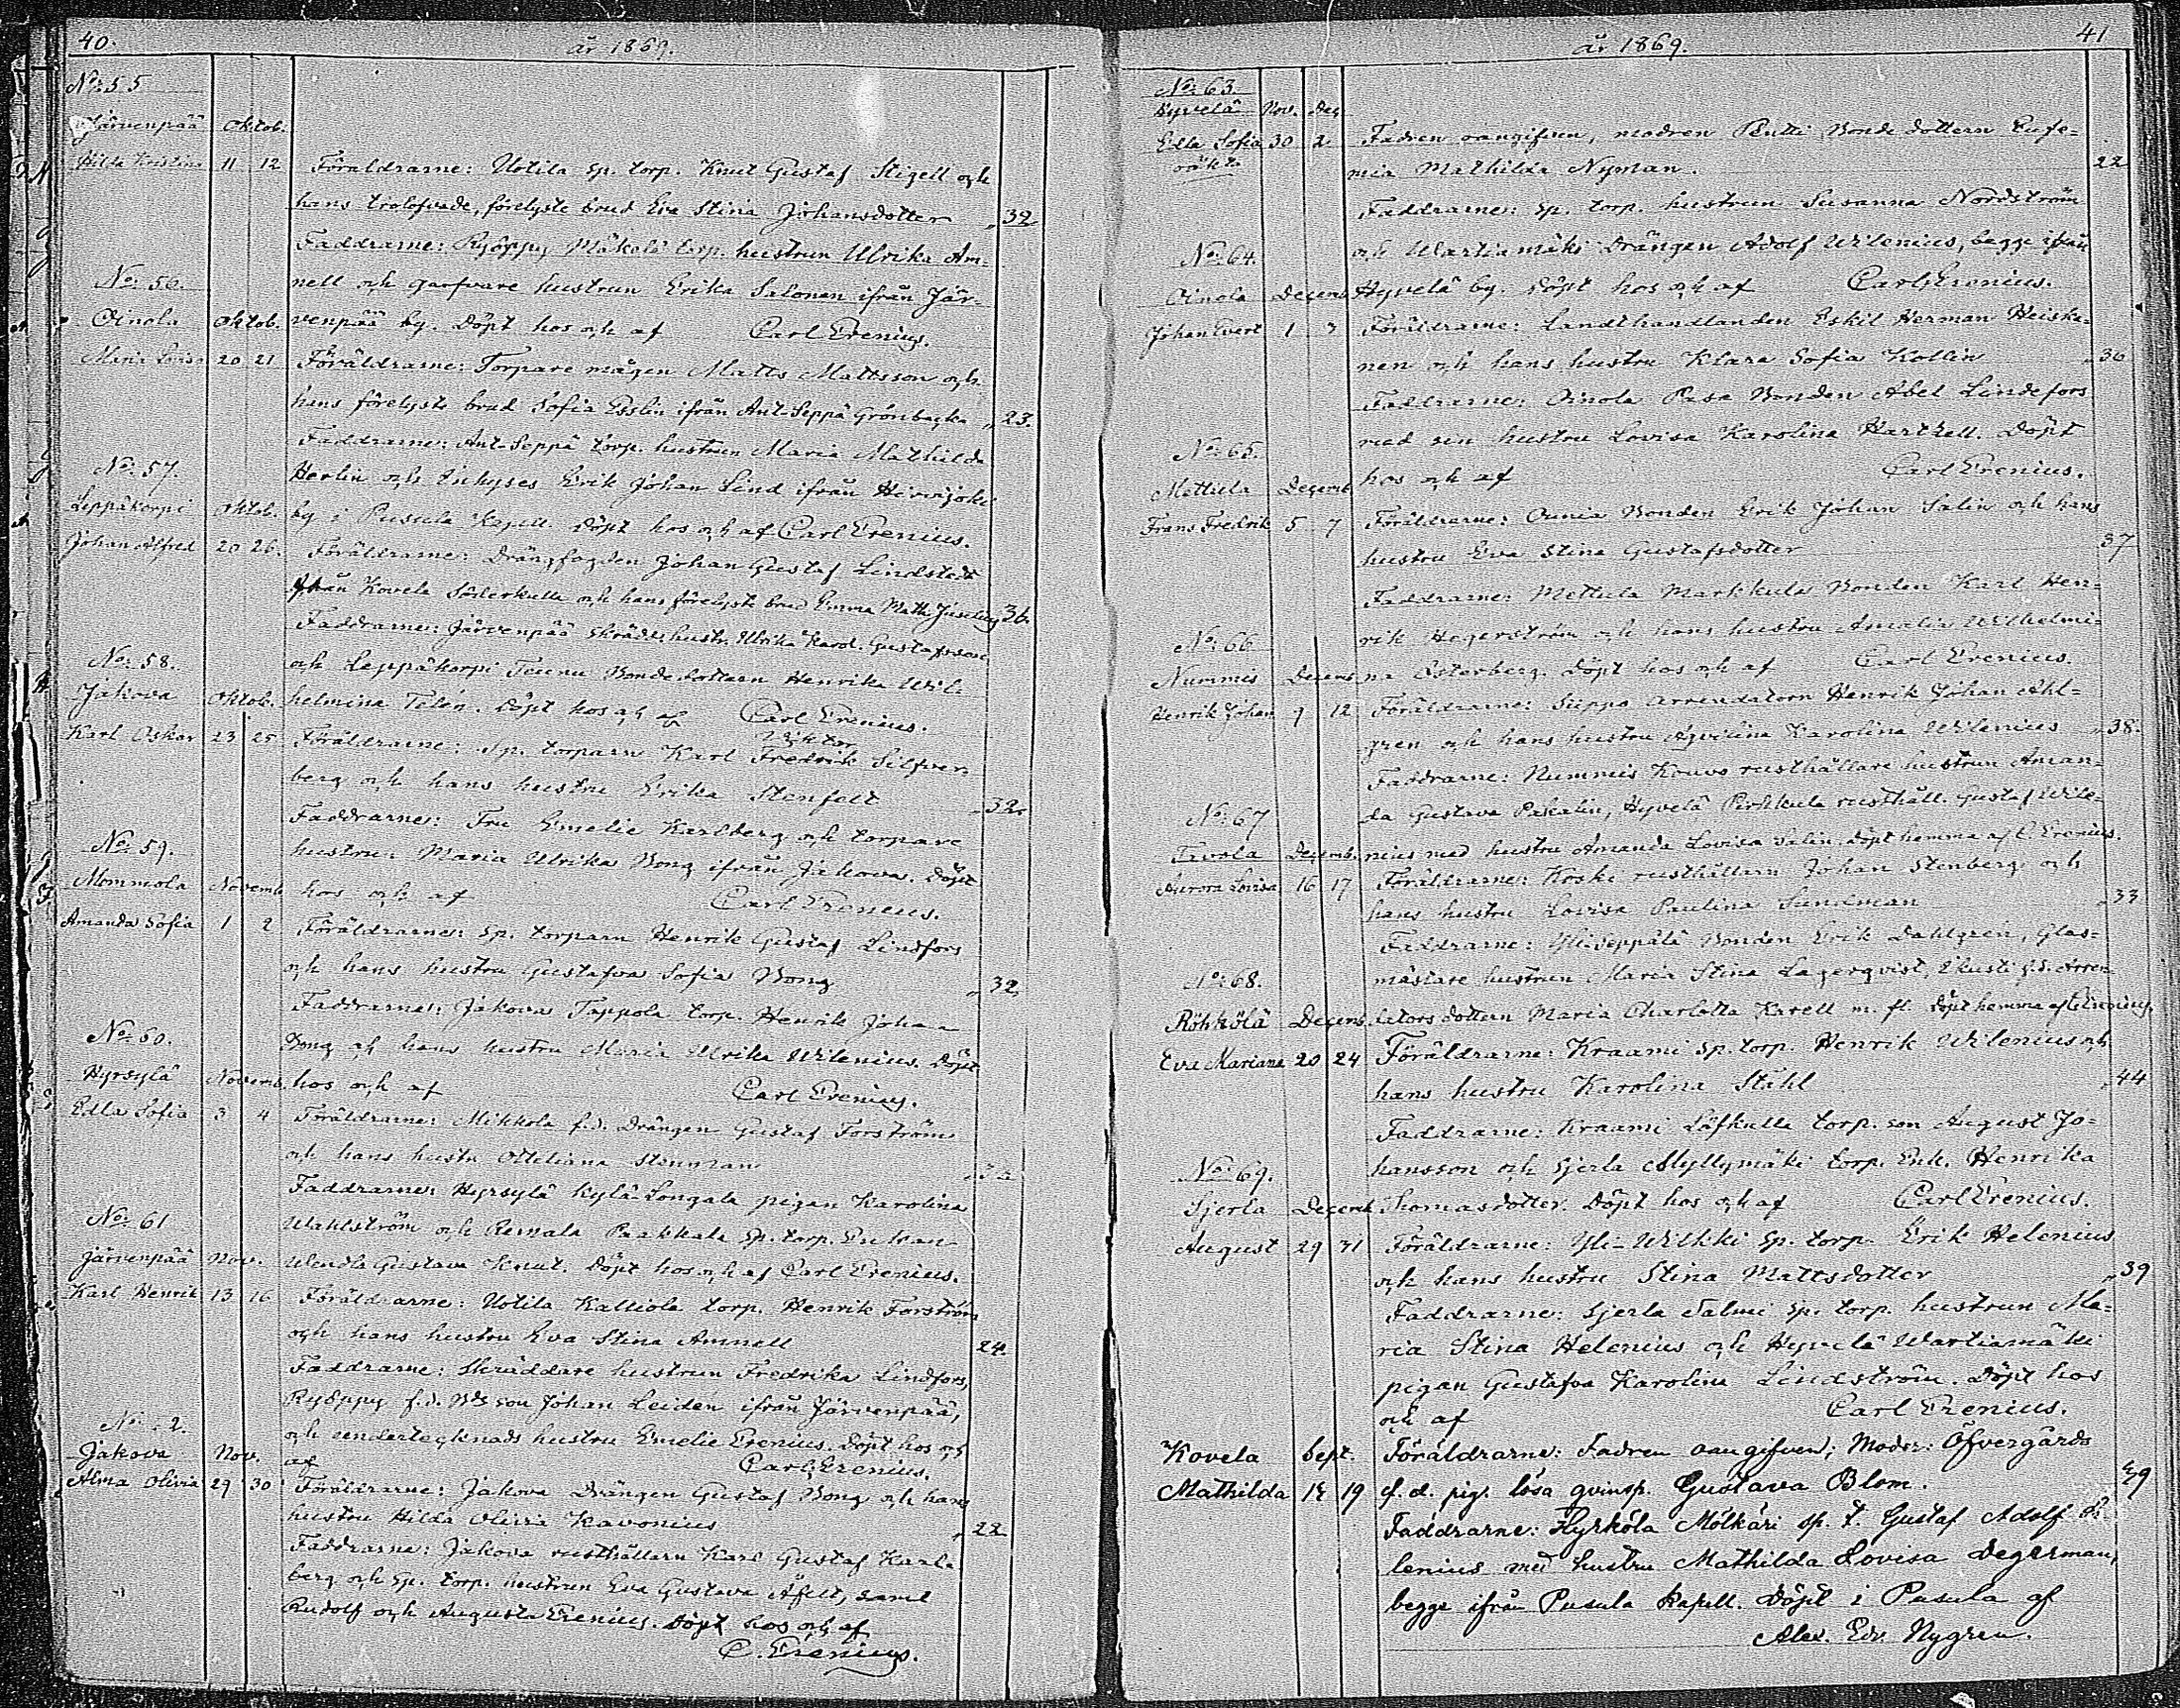 40.
år 1869.
No: 55
Järvenpää Oktob.
Hilda Kristina 11 12 Föräldrarne: Uotila sp. torp. Knut Gustaf Stigell och
hans trolofvade, förelyste brud Eva Stina Johansdotter 32
Faddrarne: Ryöppy Mäkelä torp. hustrun Ulrika Am-
No: 56.
nell och garfvare hustrun Erika Salonen ifrån Jär-
Oinola Oktob. venpää by. Döpt hos och af Carl Erenius.
Maria Lovisa 20 21 Föräldrarne: Torpare mågen Matts Mattsson och
hans förelyste brud Sofia Esslin ifrån Ant-Seppä Grönbacka 23.
Faddrarne: Ant-Seppä torp. hustrun Maria Mathilda
No: 57.
Herlin och Inhyses Erik Johan Lind ifrån Hirvijoki
Leppäkorpi Oktob. by i Pusula Kapell. Döpt hos och af Carl Erenius.
Johan Alfred 20 26. Föräldrarne: Drängfogden Johan Gustaf Lindstedt
ifrån Kovela Söderkulla och hans förelyste brud Emma Math. Juselius 36.
Faddrarne: Järvenpää Skräd. hustr. Ulrika Karol. Gustafsson
No: 58.
och Leppäkorpi Teunu Bonde dottern Henrika Wil-
Jakova Oktob. helmina Telén. Döpt hos och af Carl Erenius.
Wiktor
Karl Oskar 23 25 Föräldrarne: Sp. torparn Karl Fredrik Silfver-
berg och hans hustru Erika Stenfelt 32.
Faddrarne: Fru Emelie Karlberg och torpare
No: 59.
hustrun Maria Ulrika Bong ifrån Jakova. Döpt
Mommola Novemb. hos och af Carl Erenius.
Amanda Sofia 1 2 Föräldrarne: Sp. torparn Henrik Gustaf Lindfors
och hans hustru Gustafva Sofia Bong 32
Faddrarne: Jakova Tappola torp. Henrik Johan
No: 60.
Bong och hans hustru Maria Ulrika Wilenius. Döpt
Hyrsylä Novemb. hos och af Carl Erenius.
Edla Sofia 3 4 Föräldrarne: Mikkola f.d. Drängen Gustaf Forström
och hans hustru Ottiliana Stenman
Faddrarne: Hyrsylä Kylä-Songala pigan Karolina
No: 61
Wahlström och Remala Paakkala sp. torp. Enkan
Järvenpää Nov. Wendla Gustava Knut. Döpt hos och af Carl Erenius.
Karl Henrik 13 16 Föräldrarne: Uotila Kalliola torp. Henrik Forström
och hans hustru Eva Stina Amnell 24.
Faddrarne: Skräddare hustrun Fredrika Lindfors,
Ryöppy f.d. Bds son Johan Leidén ifrån Järvenpää,
No: 62.
och undertecknads hustru Emelie Erenius. Döpt hos och
Jakova Nov. af Carl Erenius.
Alma Olivia 29 30 Föräldrarne: Jakova Drängen Gustaf Bong och hans
hustru Hilda Olivia Kavonius 22
Faddrarne: Jakova rusthållarn Karl Gustaf Karl-
berg och sp. torp. hustrun Eva Gustava Äfelt, samt
Rudolf och Augusta Erenius. Döpt hos och af
C. Erenius.
41
år 1869.
No: 63.
Hyvelä Nov. Dec.
Edla Sofia 30 2 Fadren oangifven, modren Pentti Bonde dottern Eufe-
oäkta mia Mathilda Nyman. 22
Faddrarne: Sp. torp. hustrun Susanna Nordström
No: 64.
och Wartiamäki Drängen Adolf Wilenius, begge ifrån
Oinola Decemb. Hyvelä by. Döpt hos och af Carl Erenius.
Johan Evert 1 3 Föräldrarne: Landthandlanden Eskil Herman Heiska-
nen och hans hustru Klara Sofia Kollin 30
Faddrarne: Oinola Pasa Bonden Abel Lindefors
No: 65.
med sin hustru Lovisa Karolina Hartzell. Döpt
Mettula Decemb. hos och af Carl Erenius.
Frans Fredrik 5 7 Föräldrarne: Ounia Bonden Erik Johan Salin och hans
hustru Eva Stina Gustafsdotter 37
Faddrarne: Mettula Markkula Bonden Karl Hen-
No: 66
rik Hegerström och hans hustru Amalia Wilhelmi-
Nummis Decemb. na Österberg. Döpt hos och af Carl Erenius.
Henrik Johan 9 12 Föräldrarne: Suppo Arrendatorn Henrik Johan Ahl-
gren och hans hustru Karolina Wilenius 38.
Faddrarne: Nummis Kouvo rusthållare hustrun Aman-
No: 67
da Gustava Pakalin, Hyvelä Pirkkula rusthåll. Gustaf Wile-
Tavola Decemb. nius med hustru Amanda Lovisa Salin. Döpt hemma af C. Erenius.
Aurora Lovisa 16 17 Föräldrarne: Koski rusthållarn Johan Stenberg och
hans hustru Lovisa Paulina Sundman 33
Faddrarne: Yli-Seppälä Bonden Erik Dahlgren, Glas-
No: 68.
mästare hustrun Maria Stina Lagerqvist, Ukusti f.d. Arren-
Röhkölä Decemb. dators dottern Maria Charlotta Karell m. fl. Döpt hemma af C. Erenius.
Eva Mariana 20 24 Föräldrarne: Kraami sp. torp. Henrik Wilenius och
hans hustru Karolina Ståhl 44
Faddrarne: Kraami Löfkulla torp. son August Jo-
No: 69.
hansson och Sjerla Myllymäki torp. Enk. Henrika
Sjerla Decemb. Thomasdotter. Döpt hos och af Carl Erenius.
August 29 31 Föräldrarne: Yli-Wilkki sp. torp. Erik Helenius
och hans hustru Stina Mattsdotter 39
Faddrarne: Sjerla Salmi sp. torp. hustrun Ma-
ria Stina Helenius och Hyvelä Wartiamäki
pigan Gustafva Karolina Lindström. Döpt hos
och af Carl Erenius.
Kovela Sept. Föräldrarne: Fadren oangifven; Modr: Öfvergårds
Mathilda 19 f. d. pig. lösa qvinsp. Gustava Blom. 29
Faddrarne: Hyrköla Mölkäri sp. t. Gustaf Adolf
lenius med hustru Mathilda Lovisa Degerman,
begge ifrån Pusula Kapell. Döpt i Pusula af
Alex. Edv. Nygren.